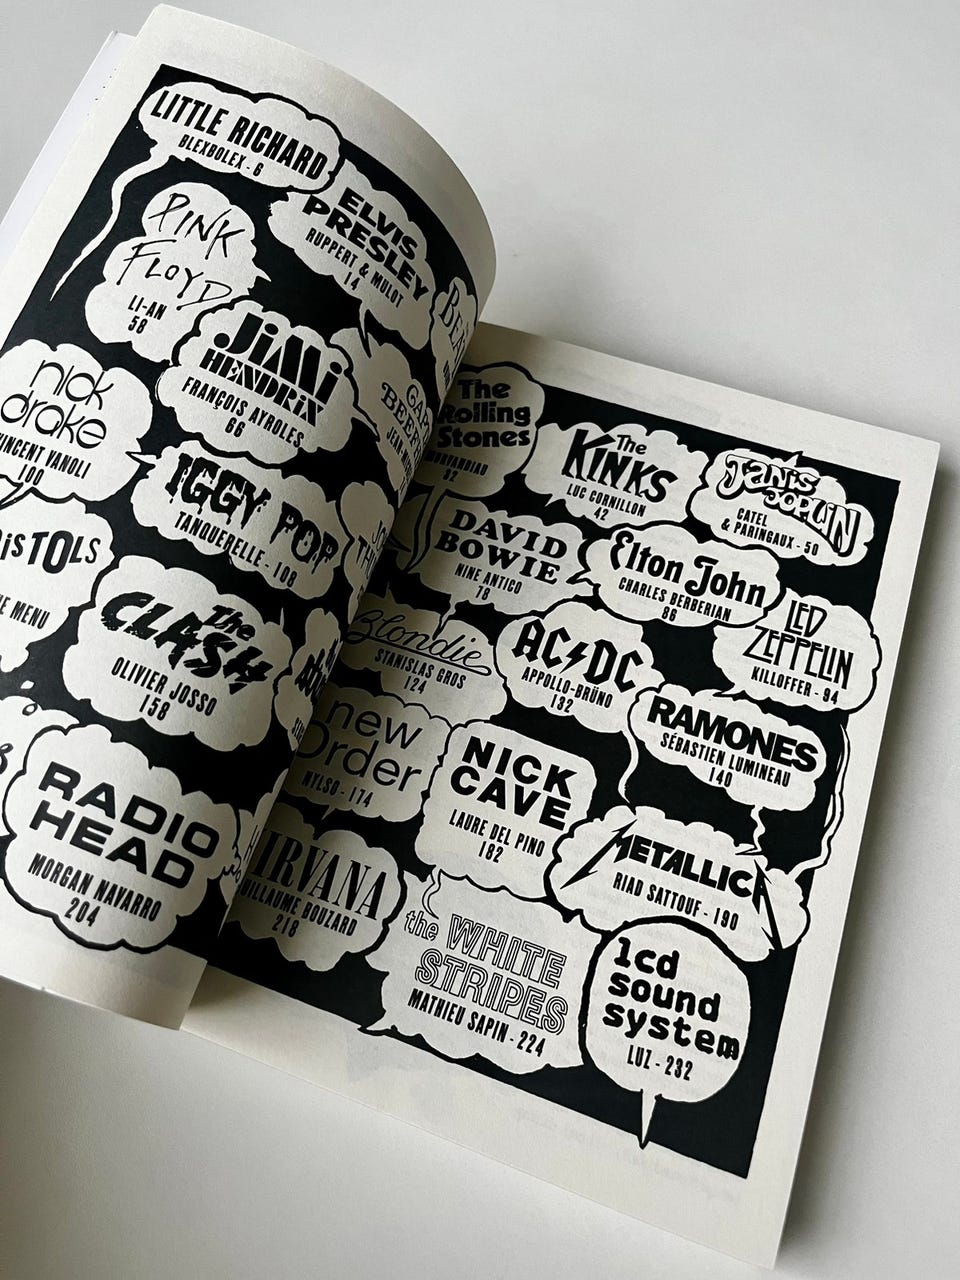 LITTLE RICHARD
BLEXBOLEX - 6
ELVIS
PRESLEY
RUPPERT & MULOT
14
PINK
FLOYD
LI-AN
58
JiMi
HENDRIX
FRANÇOIS AYROLES
66
nick
drake
VINCENT VANOLI
100
IGGY POP
TANQUERELLE - 108
The
CLASH
OLIVIER JOSSO
158
RADIO
HEAD
MORGAN NAVARRO
204
The
Rolling
Stones
The
KINKS
LUC CORNILLON
42
JANIS
JOPLIN
CATEL
& PARINGAUX - 50
DAVID
BOWIE
NINE ANTICO
78
Elton John
CHARLES BERBERIAN
86
LED
ZEPPELIN
KILLOFFER - 94
Blondie
STANISLAS GROS
124
AC DC
APPOLLO-BRÜNO
132
RAMONES
SÉBASTIEN LUMINEAU
140
new
Order
NYLSO - 174
NICK
CAVE
LAURE DEL PINO
182
METALLICA
RIAD SATTOUF - 190
BOUZARD
218
the WHITE
STRIPES
MATHIEU SAPIN - 224
lcd
sound
system
LUZ - 232